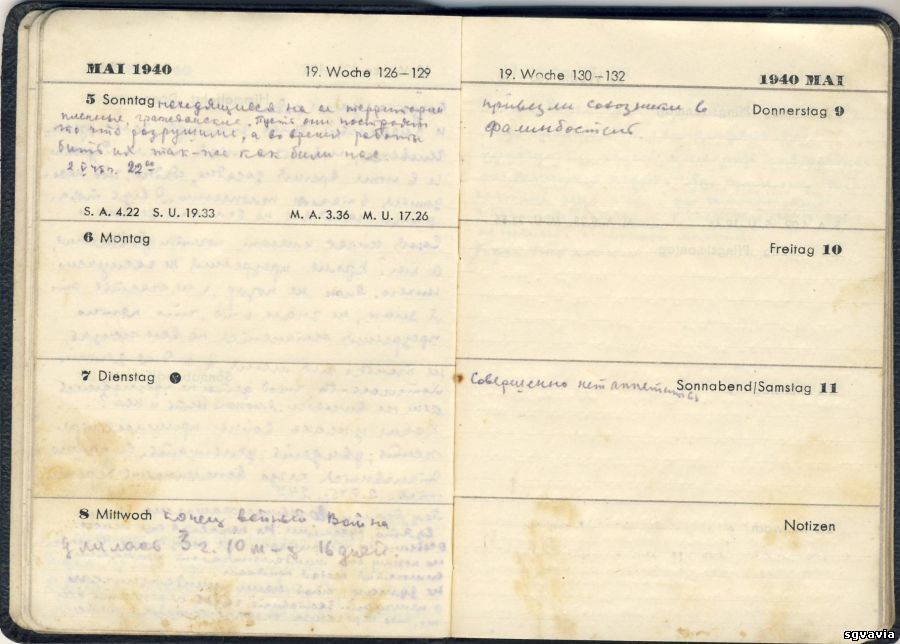 MAI 1940
19. Woche 126–129
5 Sonntag находящиеся на ея территории
пленные, гражданские. Пусть они построят
то что разрушили, а во время работы
бить их так-же как били нас
22
S. A. 4.22 S. U. 19.33 M. A. 3.36 M. U. 17.26
6 Montag
7 Dienstag
8 Mittwoch конец войны! Война
длилась 3 г. 10 м-в 16 дней.
19. Woche 130–132
1940 MAI
привезли союзники в
Donnerstag 9
Freitag 10
Совершенно нет аппетита
Sonnabend/Samstag 11
Notizen
sgvavia